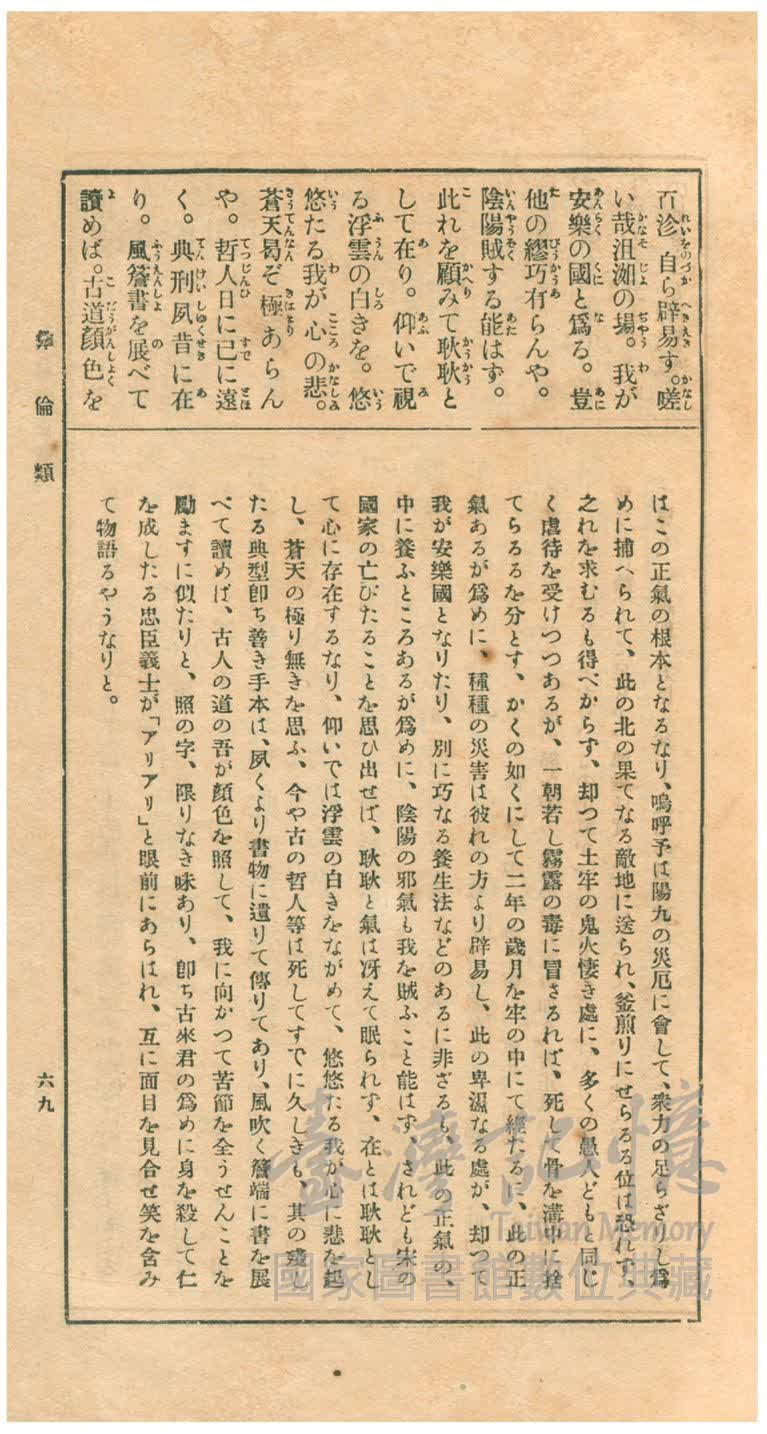 百沴自ら辟易す。嗟
い哉沮洳の場。我が
安樂の國と爲る。豈
他の繆巧有らんや。
陰陽賊する能はず。
此れを顧みて耿耿と
して在り。仰いで視
る浮雲の白きを。悠
悠たる我が心の悲。
蒼天曷ぞ極あらん
や。哲人日に已に遠
く。典刑夙昔に在
り。風簷書を展べて
讀めば。古道顏色を
はこの正氣の根本となるなり、嗚呼予は陽九の災厄に會して、衆力の足らざりし爲
めに捕へられて、此の北の果てなる敵地に送られ、釜煎りにせらるる位は恐れず、
之れを求むるも得べからず、却つて土牢の鬼火悽き處に、多くの愚人どもと同じ
く虐待を受けつつあるが、一朝若し霧露の毒に冒さるれば、死して骨を溝中に捨
てらるるを分とす、かくの如くにして二年の歲月を牢の中にて經たるに、此の正
氣あるが爲めに、種種の災害は彼れの方より辟易し、此の卑濕なる處が、却つて
我が安樂國となりたり、別に巧なる養生法などのあるに非ざるも、此の正氣の、
中に養ふところあるが爲めに、陰陽の邪氣も我を賊ふこと能はず、されども宋の
國家の亡びたることを思ひ出せば、耿耿と氣は冴えて眠られず、在とは耿耿とし
て心に存在するなり、仰いでは浮雲の白きをながめて、悠悠たる我が心に悲を起
し、蒼天の極り無きを思ふ、今や古の哲人等は死してすでに久しきも、其の遺し
たる典型卽ち善き手本は、夙くより書物に遺りて傳りてあり、風吹く簷端に書を展
べて讀めば、古人の道の吾が顏色を照して、我に向かつて苦節を全うせんことを
勵ますに似たりと、照の字、限りなき味あり、卽ち古來君の爲めに身を殺して仁
を成したる忠臣義士が「アリアリ」と眼前にあらはれ、互に面目を見合せ笑を含み
て物語るやうなりと。
彝倫類
六九
臺灣記憶
Taiwan Memory
國家圖書館數位典藏